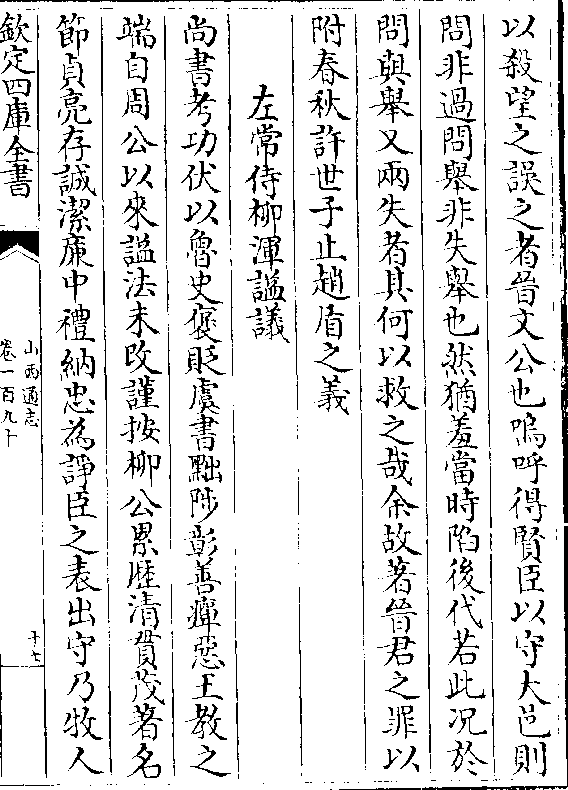 以殺望之誤之者晉文公也嗚呼得賢臣以守大邑則
問非過問舉非失舉也然猶羞當時陷後代若此况於
問與舉又兩失者其何以救之哉余故著晉君之罪以
附春秋許世子止趙盾之義
左常侍柳渾謚議
尚書考功伏以魯史褒貶虞書黜陟彰善癉惡王教之
端自周公以來謚法未改謹按柳公累歴清貫茂著名
節貞亮存誠潔廉中禮納忠為諍臣之表出守乃牧人
欽定四庫全書
山西通志
卷一百九十
十七